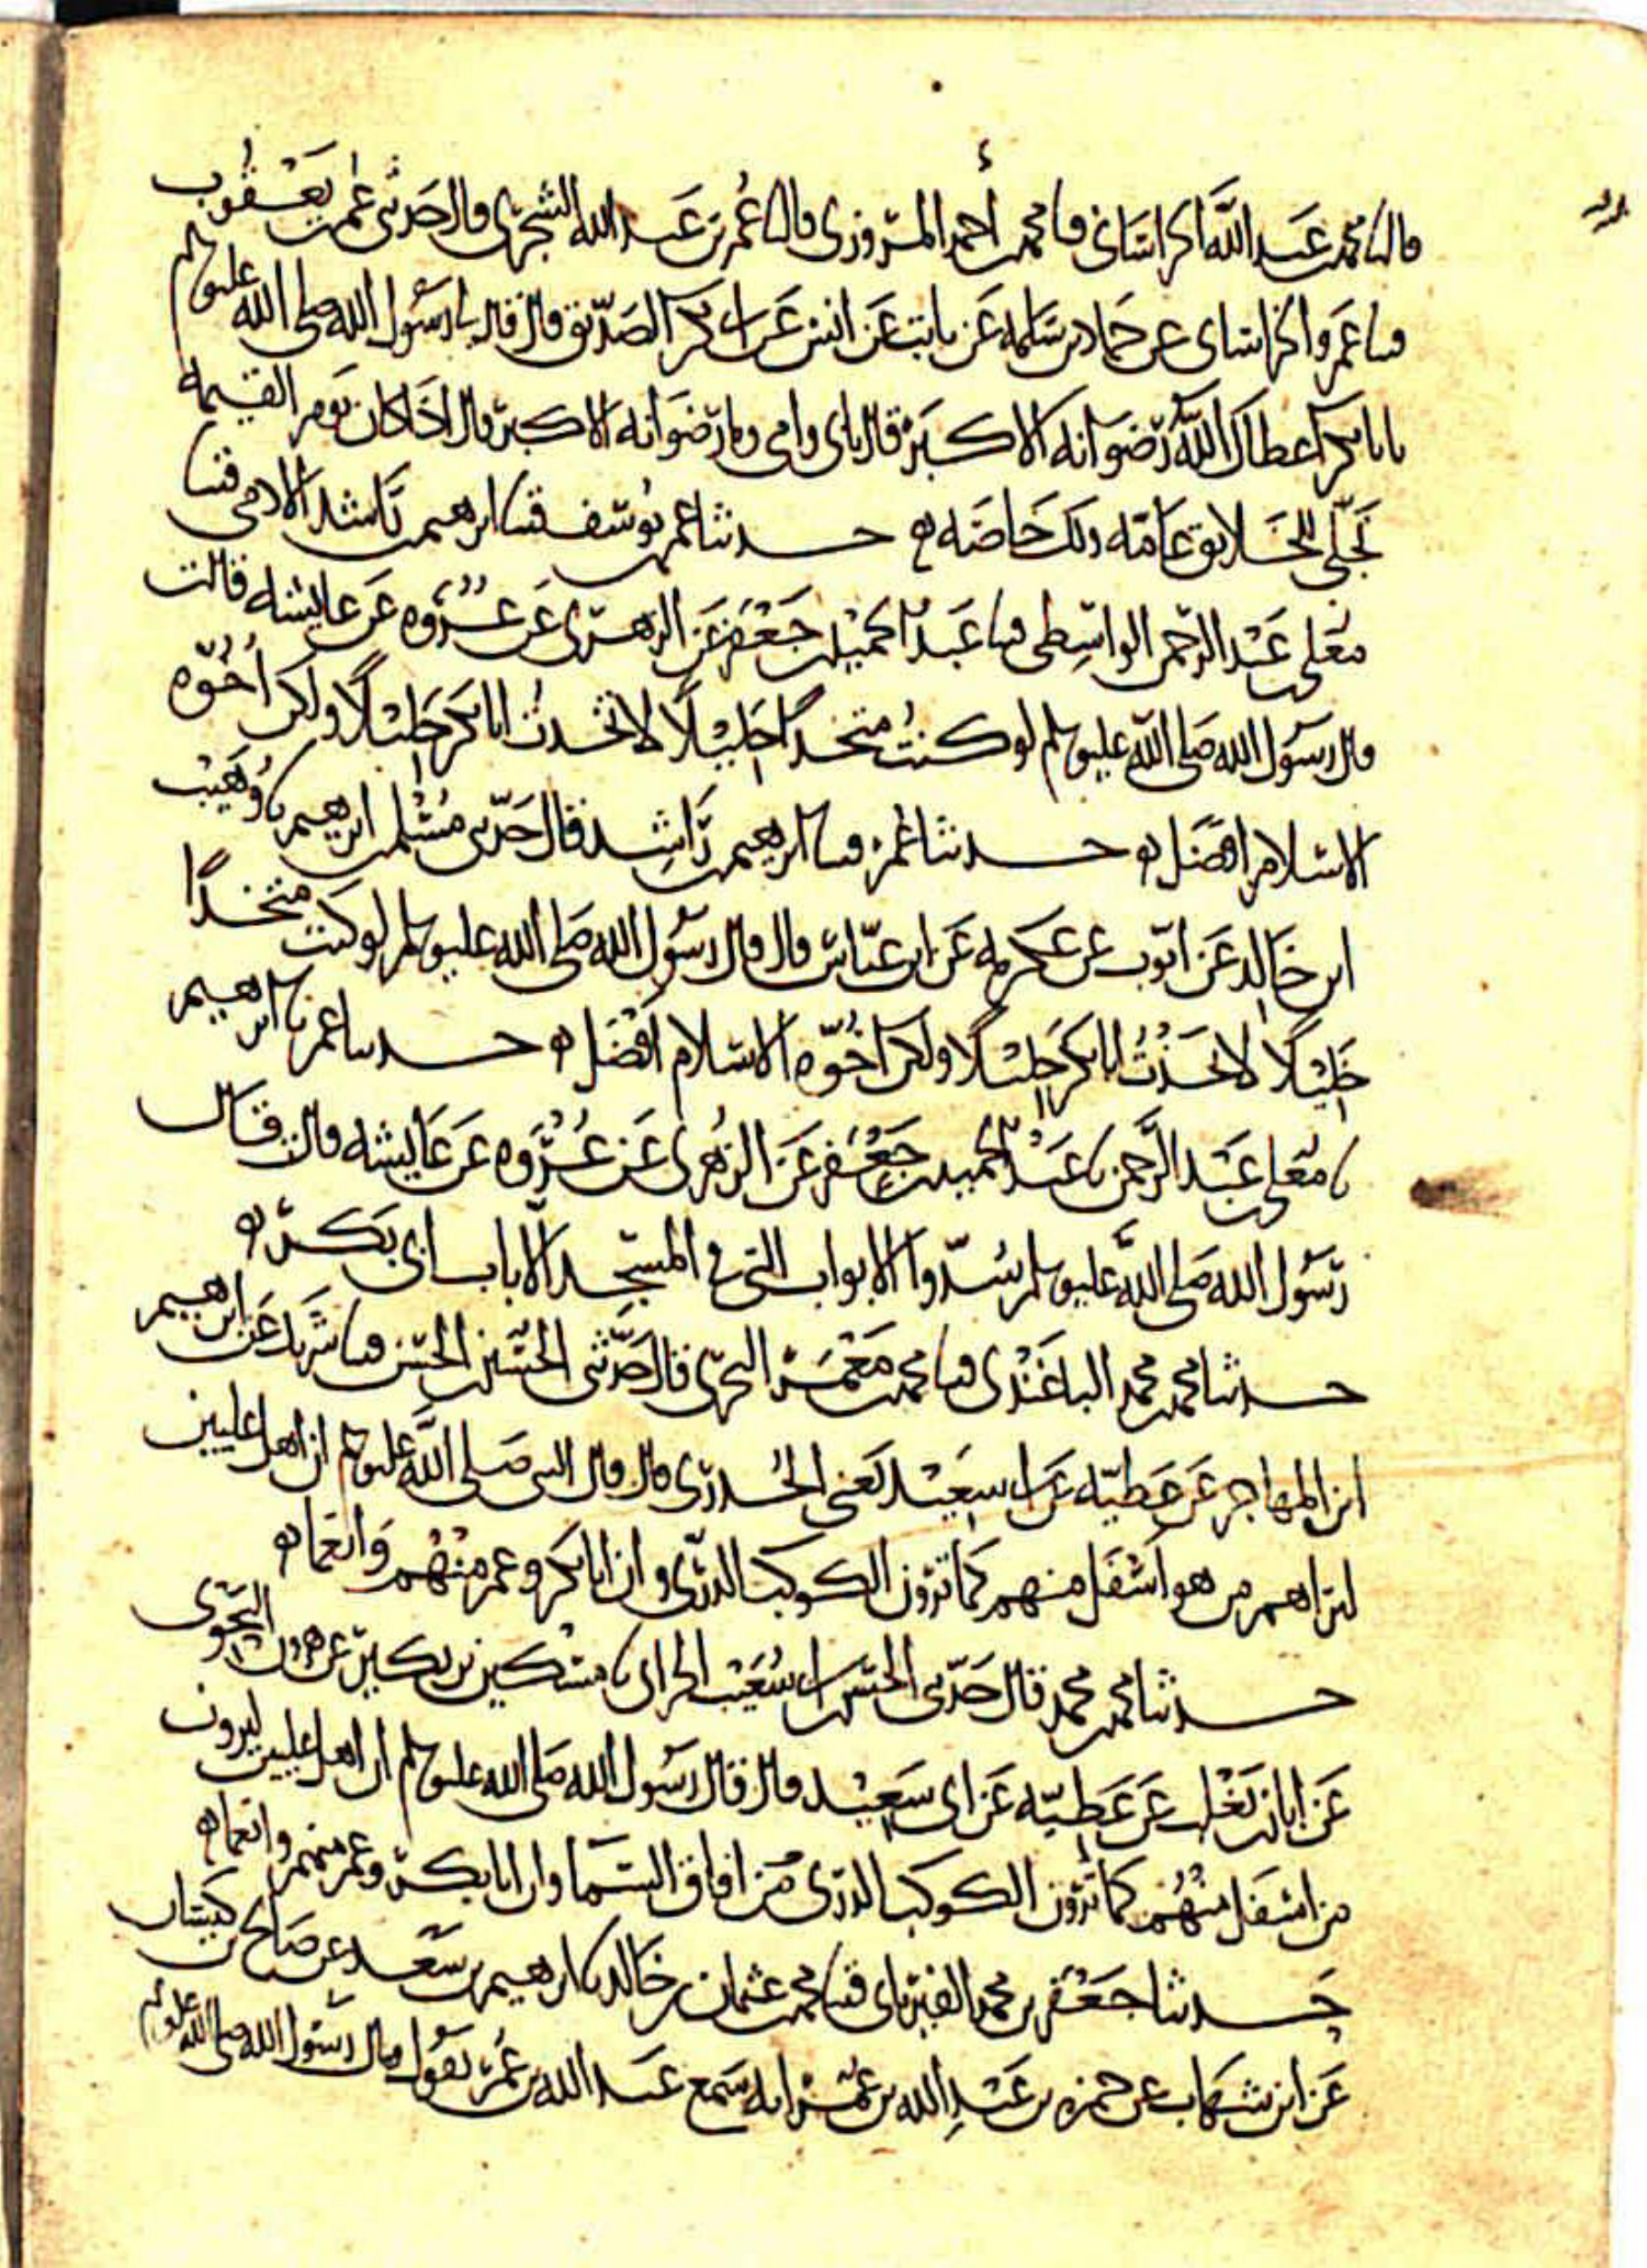 قال نا محمد بن عبد الله الخراساني قثنا محمد بن احمد المروزي قال نا عمر بن عبد الله الشجري قال حدثني عمر بن يعقوب
قثنا عمرو الخراساني عن حماد بن سلمه عن ثابت عن انس عن ابي بكر الصديق قال قال يا رسول الله صلى الله عليه وسلم
يا ابا بكر اعطاك الله رضوانه الاكبر قال بابي وامي وما رضوانه الاكبر قال اذا كان يوم القيمه
تجلى للخلايق عامه ولك خاصه حدثنا عمر بن يوسف قثنا ابرهيم بن راشد الادمي قثنا
معلى بن عبد الرحمن الواسطي قثنا عبد الحميد بن جعفر عن الزهري عن عروه عن عايشه قالت
قال رسول الله صلى الله عليه وسلم لو كنت متخذا خليلا لاتخذت ابا بكر خليلا ولكن اخوه
الاسلام افضل حدثنا عمر قثنا ابرهيم بن راشد قال حدثني مسلم بن ابرهيم نا وهيب
ابن خالد عن ايوب عن عكرمه عن ابن عباس قال قال رسول الله صلى الله عليه وسلم لو كنت متخذا
خليلا لاتخذت ابا بكر خليلا ولكن اخوه الاسلام افضل حدثنا عمر نا ابرهيم
نا معلى بن عبد الرحمن نا عبد الحميد بن جعفر عن الزهري عن عروه عن عايشه قالت قال
رسول الله صلى الله عليه وسلم سدوا الابواب التي في المسجد الا باب ابي بكر
حدثنا محمد بن محمد الباغندي قثنا محمد بن معمر البحري قال حدثني الحسين بن الحسن قثنا شريك عن ابرهيم
ابن المهاجر عن عطيه عن ابي سعيد يعني الخدري قال قال النبي صلى الله عليه وسلم ان اهل عليين
ليراهم من هو اسفل منهم كما ترون الكوكب الدري وان ابا بكر وعمر منهم وانعما
حدثنا محمد بن محمد قال حدثني الحسن بن ابي شعيب الحراني نا مسكين بن بكير عن هرون النحوي
عن ابان بن تغلب عن عطيه عن ابي سعيد قال قال رسول الله صلى الله عليه وسلم ان اهل عليين ليرون
من اسفل منهم كما ترون الكوكب الدري من افاق السما وان ابا بكر وعمر منهم وانعما
حدثنا جعفر بن محمد الفريابي قثنا محمد بن عثمان بن خالد نا ابرهيم بن سعد عن صالح بن كيسان
عن ابن شهاب عن حمزه بن عبد الله بن عمر انه سمع عبد الله بن عمر يقول قال رسول الله صلى الله عليه وسلم